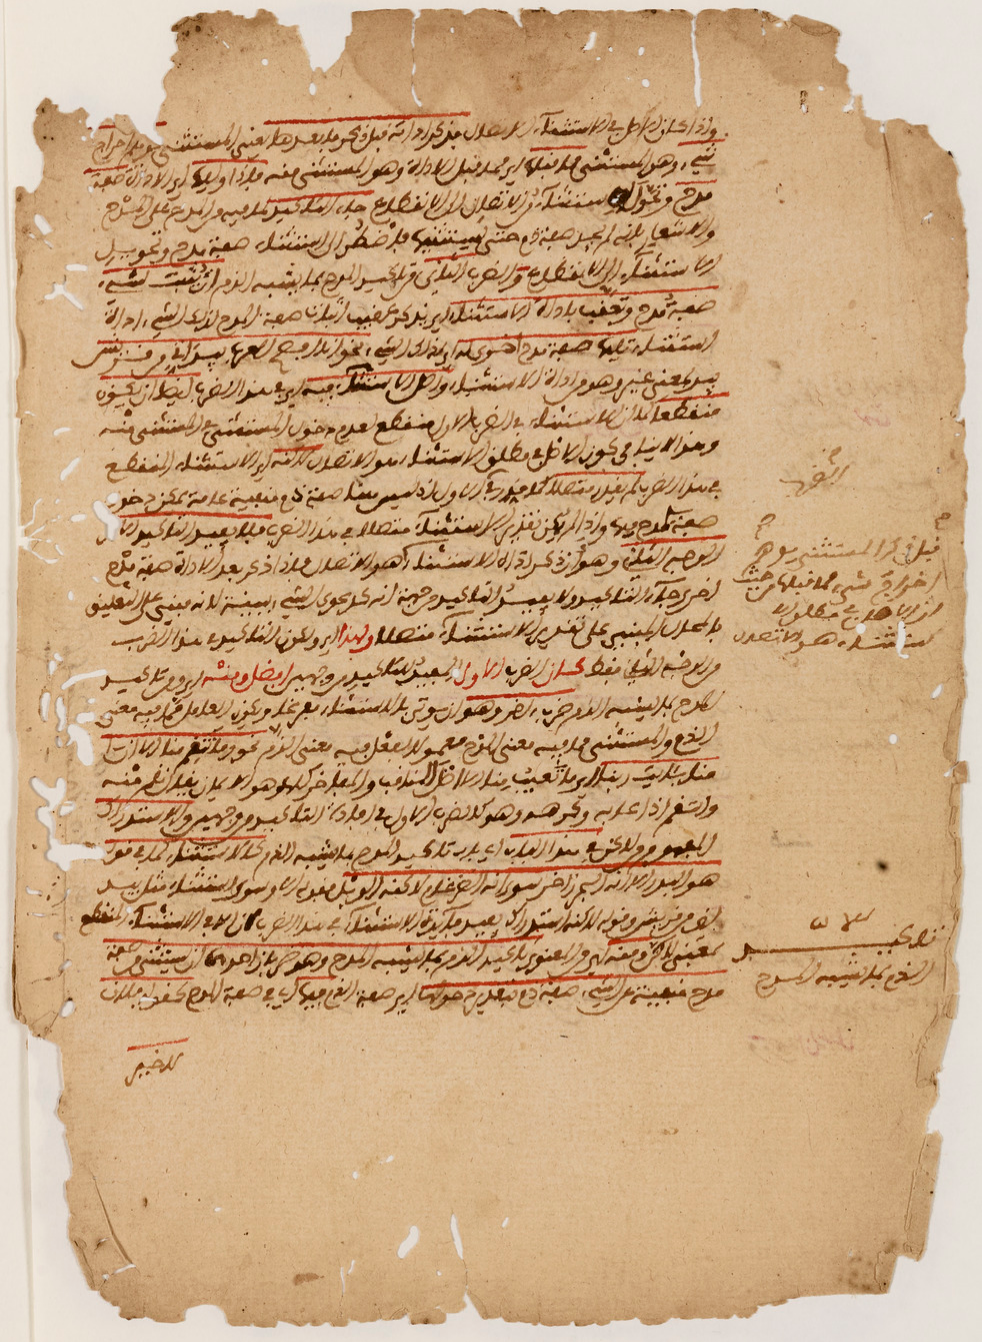 واذا كان الاصل في الاستثناء الاتصال فذكر اداته قبل ذكر ما بعدها يعني المستثنى يوهم اخراج
شيء وهو المستثنى مما قبلها اي مما قبل الاداة وهو المستثنى منه فاذا وليها اي الاداة صفة
مدح وتحول الاستثناء من الاتصال الى الانقطاع جاء التاكيد لما فيه من المدح على المدح
والاشعار بانه لم يجد صفة ذم حتى يستثنيها فاضطر الى استثناء صفة مدح وتحويل
الاستثناء الى الانقطاع والضرب الثاني من تاكيد المدح بما يشبه الذم ان يثبت لشيء
صفة مدح وتعقب باداة الاستثناء اي يذكر عقيب اثبات صفة المدح لذلك الشيء اداة
استثناء تليها صفة مدح اخرى له اي لذلك الشيء نحو انا افصح العرب بيد اني من قريش
بيد بمعنى غير وهو من اداة الاستثناء واصل الاستثناء فيه اي في هذا الضرب ايضا ان يكون
منقطعا كما ان الاستثناء في الضرب الاول منقطع لعدم دخول المستثنى في المستثنى منه
وهذا لا ينافي كون الاصل في مطلق الاستثناء هو الاتصال لكنه اي الاستثناء المنقطع
في هذا الضرب لم يقدر متصلا كما قدر في الاول اذ ليس هنا صفة ذم منفية عامة يمكن دخول
صفة المدح فيها واذا لم يكن تقدير الاستثناء متصلا في هذا الضرب فلا يفيد التاكيد الا من
الوجه الثاني وهو ان ذكر اداة الاستثناء هو الاتصال فاذا ذكر بعد الاداة صفة مدح
اخرى جاء التاكيد ولا يفيد التاكيد من جهة انه كدعوى الشيء ببينة لانه مبني على التعليق
بالمحال المبني على تقدير الاستثناء متصلا ولهذا اي ولكون التاكيد في هذا الضرب
من الوجه الثاني فقط كان الضرب الاول المفيد للتاكيد من وجهين افضل ومنه اي ومن تاكيد
المدح بما يشبه الذم ضرب اخر وهو ان يوتى بالاستثناء مفرغا ويكون العامل مما فيه معنى
الذم والمستثنى مما فيه معنى المدح معمولا لفعل فيه معنى الذم نحو وما تنقم منا الا ان
امنا بايات ربنا اي ما تعيب منا الا اصل المناقب والمفاخر كلها وهو الايمان يقال نقم منه
وانتقم اذا عابه وكرهه وهو كالضرب الاول في افادة التاكيد من وجهين والاستدراك
المفهوم من لكن في هذا الباب اي باب تاكيد المدح بما يشبه الذم كالاستثناء كما في قوله
هو البدر الا انه البحر زاخرا سوى انه الضرغام لكنه الوبل فقوله الا وسوى استثناء مثل بيد
اني من قريش وقوله لكنه استدراك يفيد ما يفيده الاستثناء في هذا الضرب لان الا في الاستثناء المنقطع
بمعنى لكن ومنه اي ومن المعنوي تاكيد الذم بما يشبه المدح وهو ضربان احدهما ان يستثنى من صفة
مدح منفية عن الشيء صفة ذم بتقدير دخولها اي صفة الذم فيها اي في صفة المدح كقولك فلان
لا خير
الضرب
قبل ذكر المستثنى يوهم
اخراج شيء مما قبلها من حيث
ان الاصل في مطلق الا
ستثناء هو الاتصال
تاكيد
الذم بما يشبه المدح